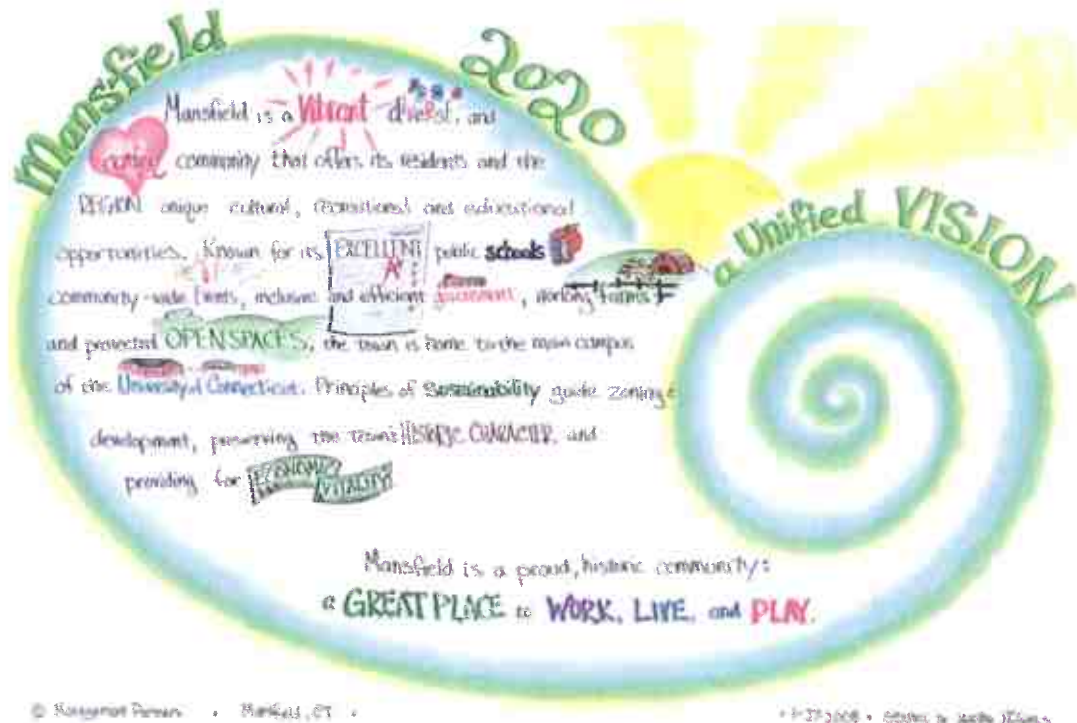 Mansfield 2020
a Unified VISION
Mansfield is a Vibrant diverse, and
caring community that offers its residents and the
REGION unique cultural, recreational and educational
opportunities. Known for its EXCELLENT public schools
community-wide events, inclusive and efficient government, working farms
and protected OPEN SPACES, the town is home to the main campus
of the University of Connecticut. Principles of Sustainability guide zoning &
development, preserving the Town's HISTORIC CHARACTER and
providing for ECONOMIC VITALITY
Mansfield is a proud, historic community:
a GREAT PLACE to WORK, LIVE, and PLAY.
© Management Partners • Mansfield, CT •